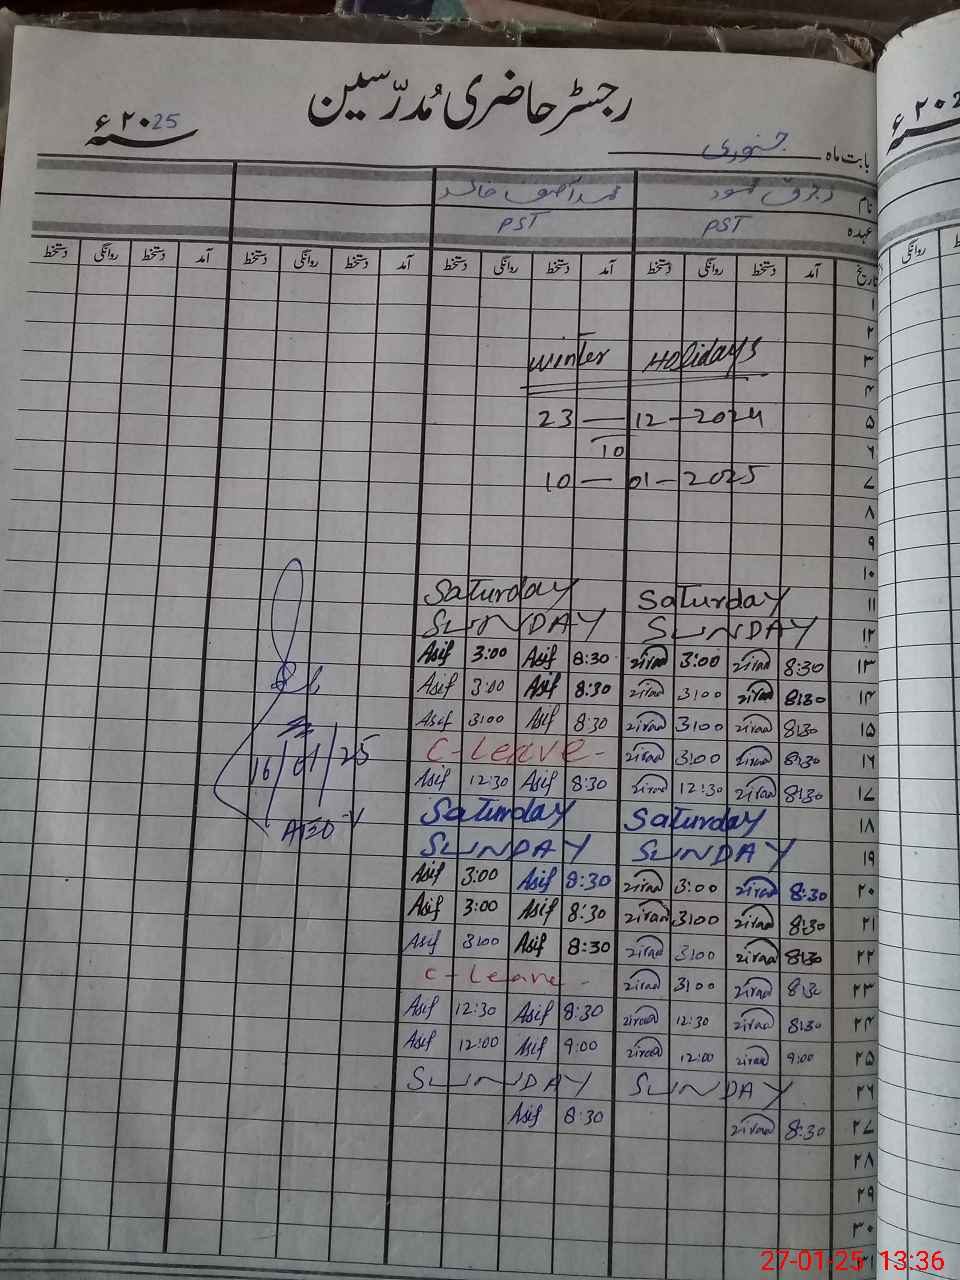 رجسٹر حاضری مُدرّسین
سنہ ۲۰25ء
بابت ماہ جنوری
نام
عہدہ PST PST
تاریخ آمد دستخط روانگی دستخط آمد دستخط روانگی دستخط آمد دستخط روانگی دستخط آمد دستخط روانگی دستخط
۱
۲
۳ Winter Holidays
۴
۵ 23 — 12 — 2024
۶ To
۷ 10 — 01 — 2025
۸
۹
۱۰
۱۱ Saturday Saturday
۱۲ SUNDAY SUNDAY
۱۳ 8:30 3:00 8:30 Asif 3:00 Asif
۱۴ 8:30 3:00 8:30 Asif 3:00 Asif
۱۵ 8:30 3:00 8:30 Asif 3:00 Asif
۱۶ 8:30 3:00 C-Leave-
۱۷ 8:30 12:30 8:30 Asif 12:30 Asif
16/01/25
۱۸ Saturday Saturday
۱۹ SUNDAY SUNDAY
۲۰ 8:30 3:00 8:30 Asif 3:00 Asif
۲۱ 8:30 3:00 8:30 Asif 3:00 Asif
۲۲ 8:30 3:00 8:30 Asif 3:00 Asif
۲۳ 8:30 3:00 C-Leave-
۲۴ 8:30 12:30 8:30 Asif 12:30 Asif
۲۵ 9:00 12:00 9:00 Asif 12:00 Asif
۲۶ SUNDAY SUNDAY
۲۷ 8:30 8:30 Asif
۲۸
۲۹
۳۰
۳۱
27-01-25 13:36